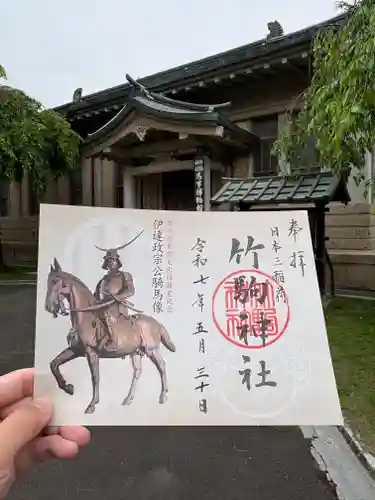 馬事博物館
奉拝
日本三稲荷
竹駒神社
令和七年五月三十日
伊達政宗公騎馬像